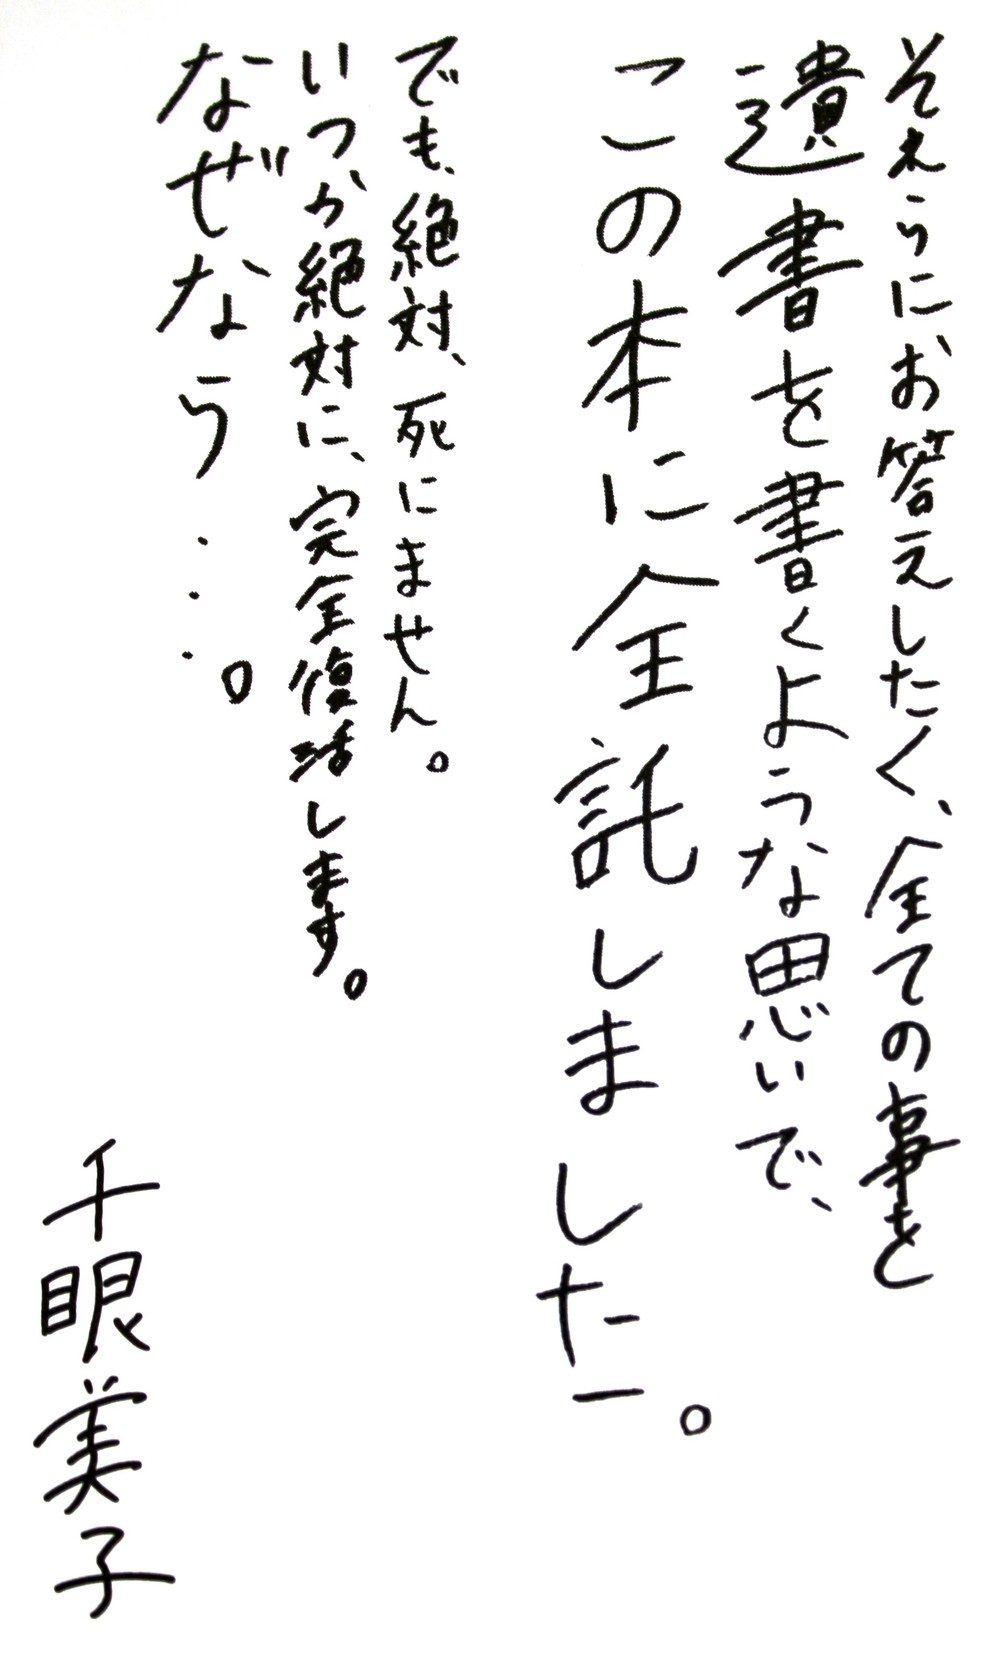 それらにお答えしたく、全ての事を
遺書を書くような思いで、
この本に全託しました。
でも、絶対、死にません。
いつか絶対に、完全復活します。
なぜなら・・・。
千眼美子